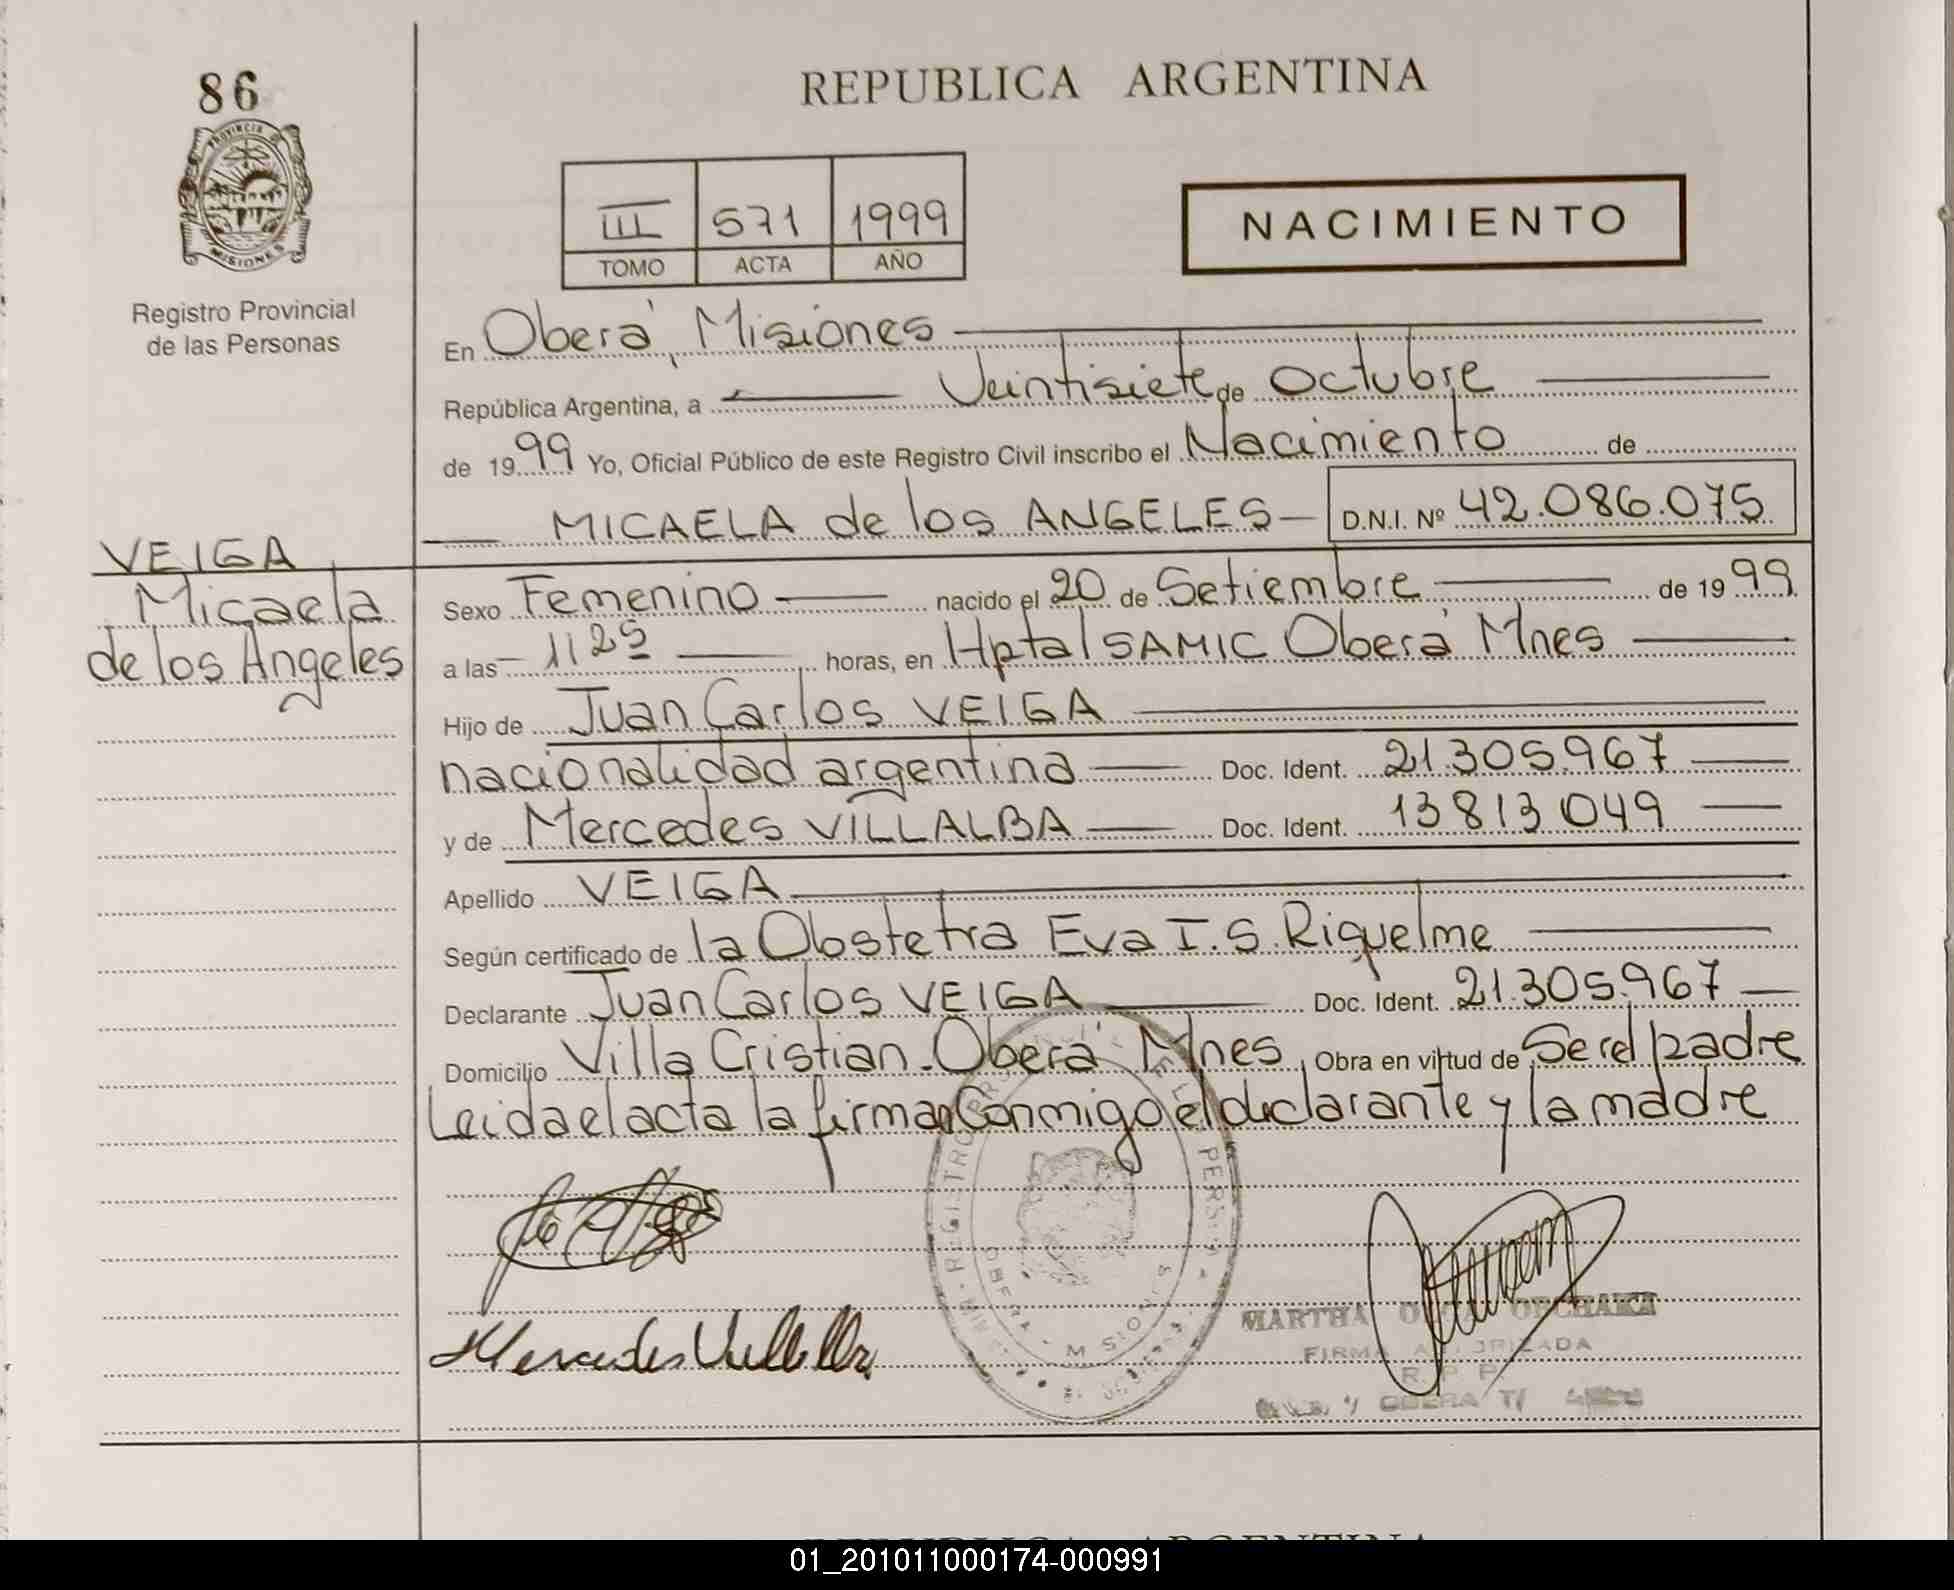 86
REPUBLICA ARGENTINA
PROVINCIA DE
MISIONES
Registro Provincial
de las Personas
III 571 1999
TOMO ACTA AÑO
NACIMIENTO
En Oberá, Misiones
República Argentina, a Veintisiete de Octubre
de 1999 Yo, Oficial Público de este Registro Civil inscribo el Nacimiento de
MICAELA de los ANGELES D.N.I. Nº 42.086.075
VEIGA
Micaela
de los Angeles
Sexo Femenino nacido el 20 de Setiembre de 1999
a las 11 25 horas, en Hptal SAMIC Oberá Mnes
Hijo de Juan Carlos VEIGA
nacionalidad argentina Doc. Ident. 21.305.967
y de Mercedes VILLALBA Doc. Ident. 13813049
Apellido VEIGA
Según certificado de la Obstetra Eva I.S. Riquelme
Declarante Juan Carlos VEIGA Doc. Ident. 21.305.967
Domicilio Villa Cristian - Oberá Mnes Obra en virtud de Ser el padre
Leida el acta la firman Conmigo el declarante y la madre
Mercedes Villalba
MARTHA
FIRMA AUTORIZADA
R. P. P.
OBERA
MISIONES
01_201011000174-000991